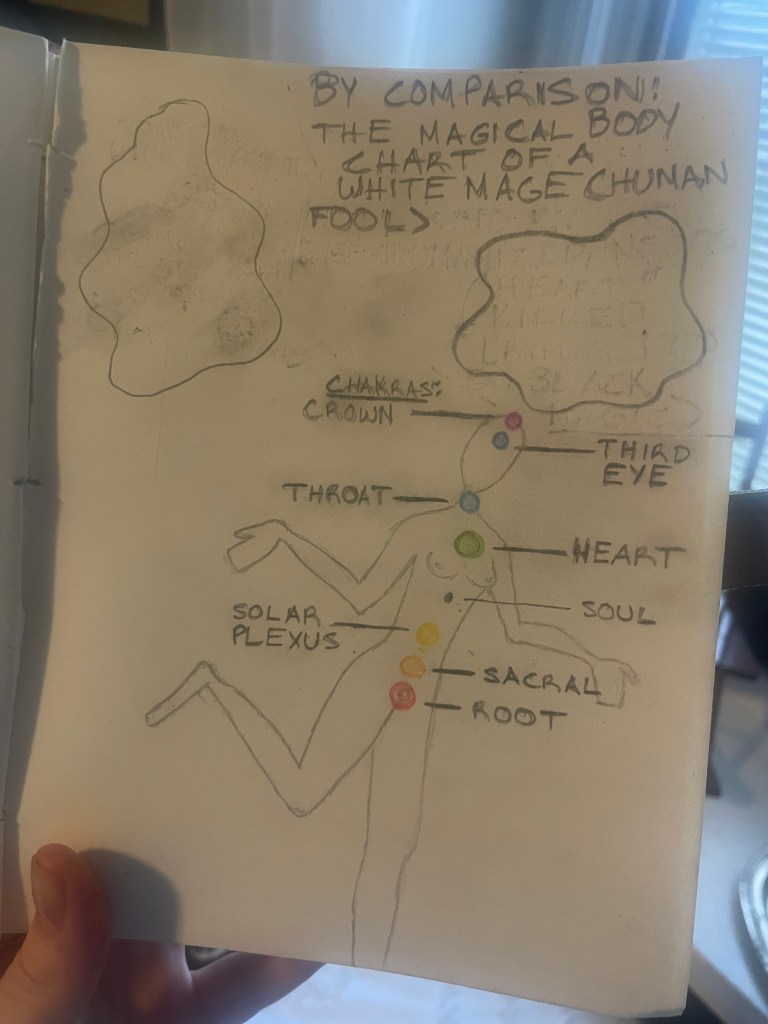 BY COMPARISON:
THE MAGICAL BODY
CHART OF A
WHITE MAGE CHUMAN
FOOL>
HEART"
KILLED
BLACK
CHAKRAS:
CROWN
THIRD
EYE
THROAT
HEART
SOUL
SOLAR
PLEXUS
SACRAL
ROOT